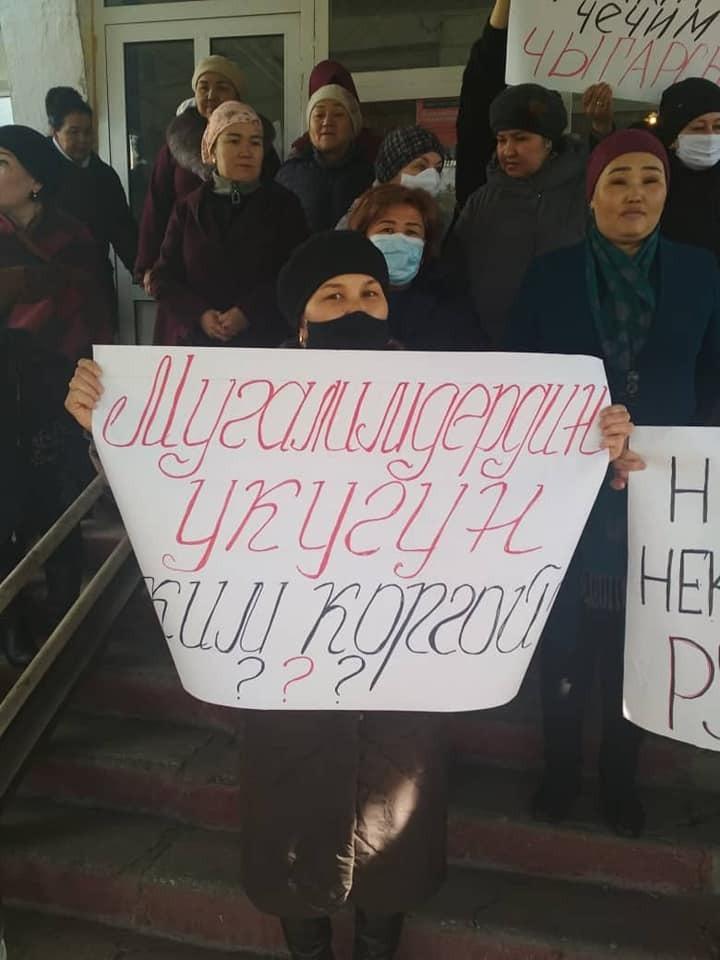 чечим
ЧЫГАРС
Мугалимдердин
укугун
ким коргой
? ? ?
Н
НЕК
РУ